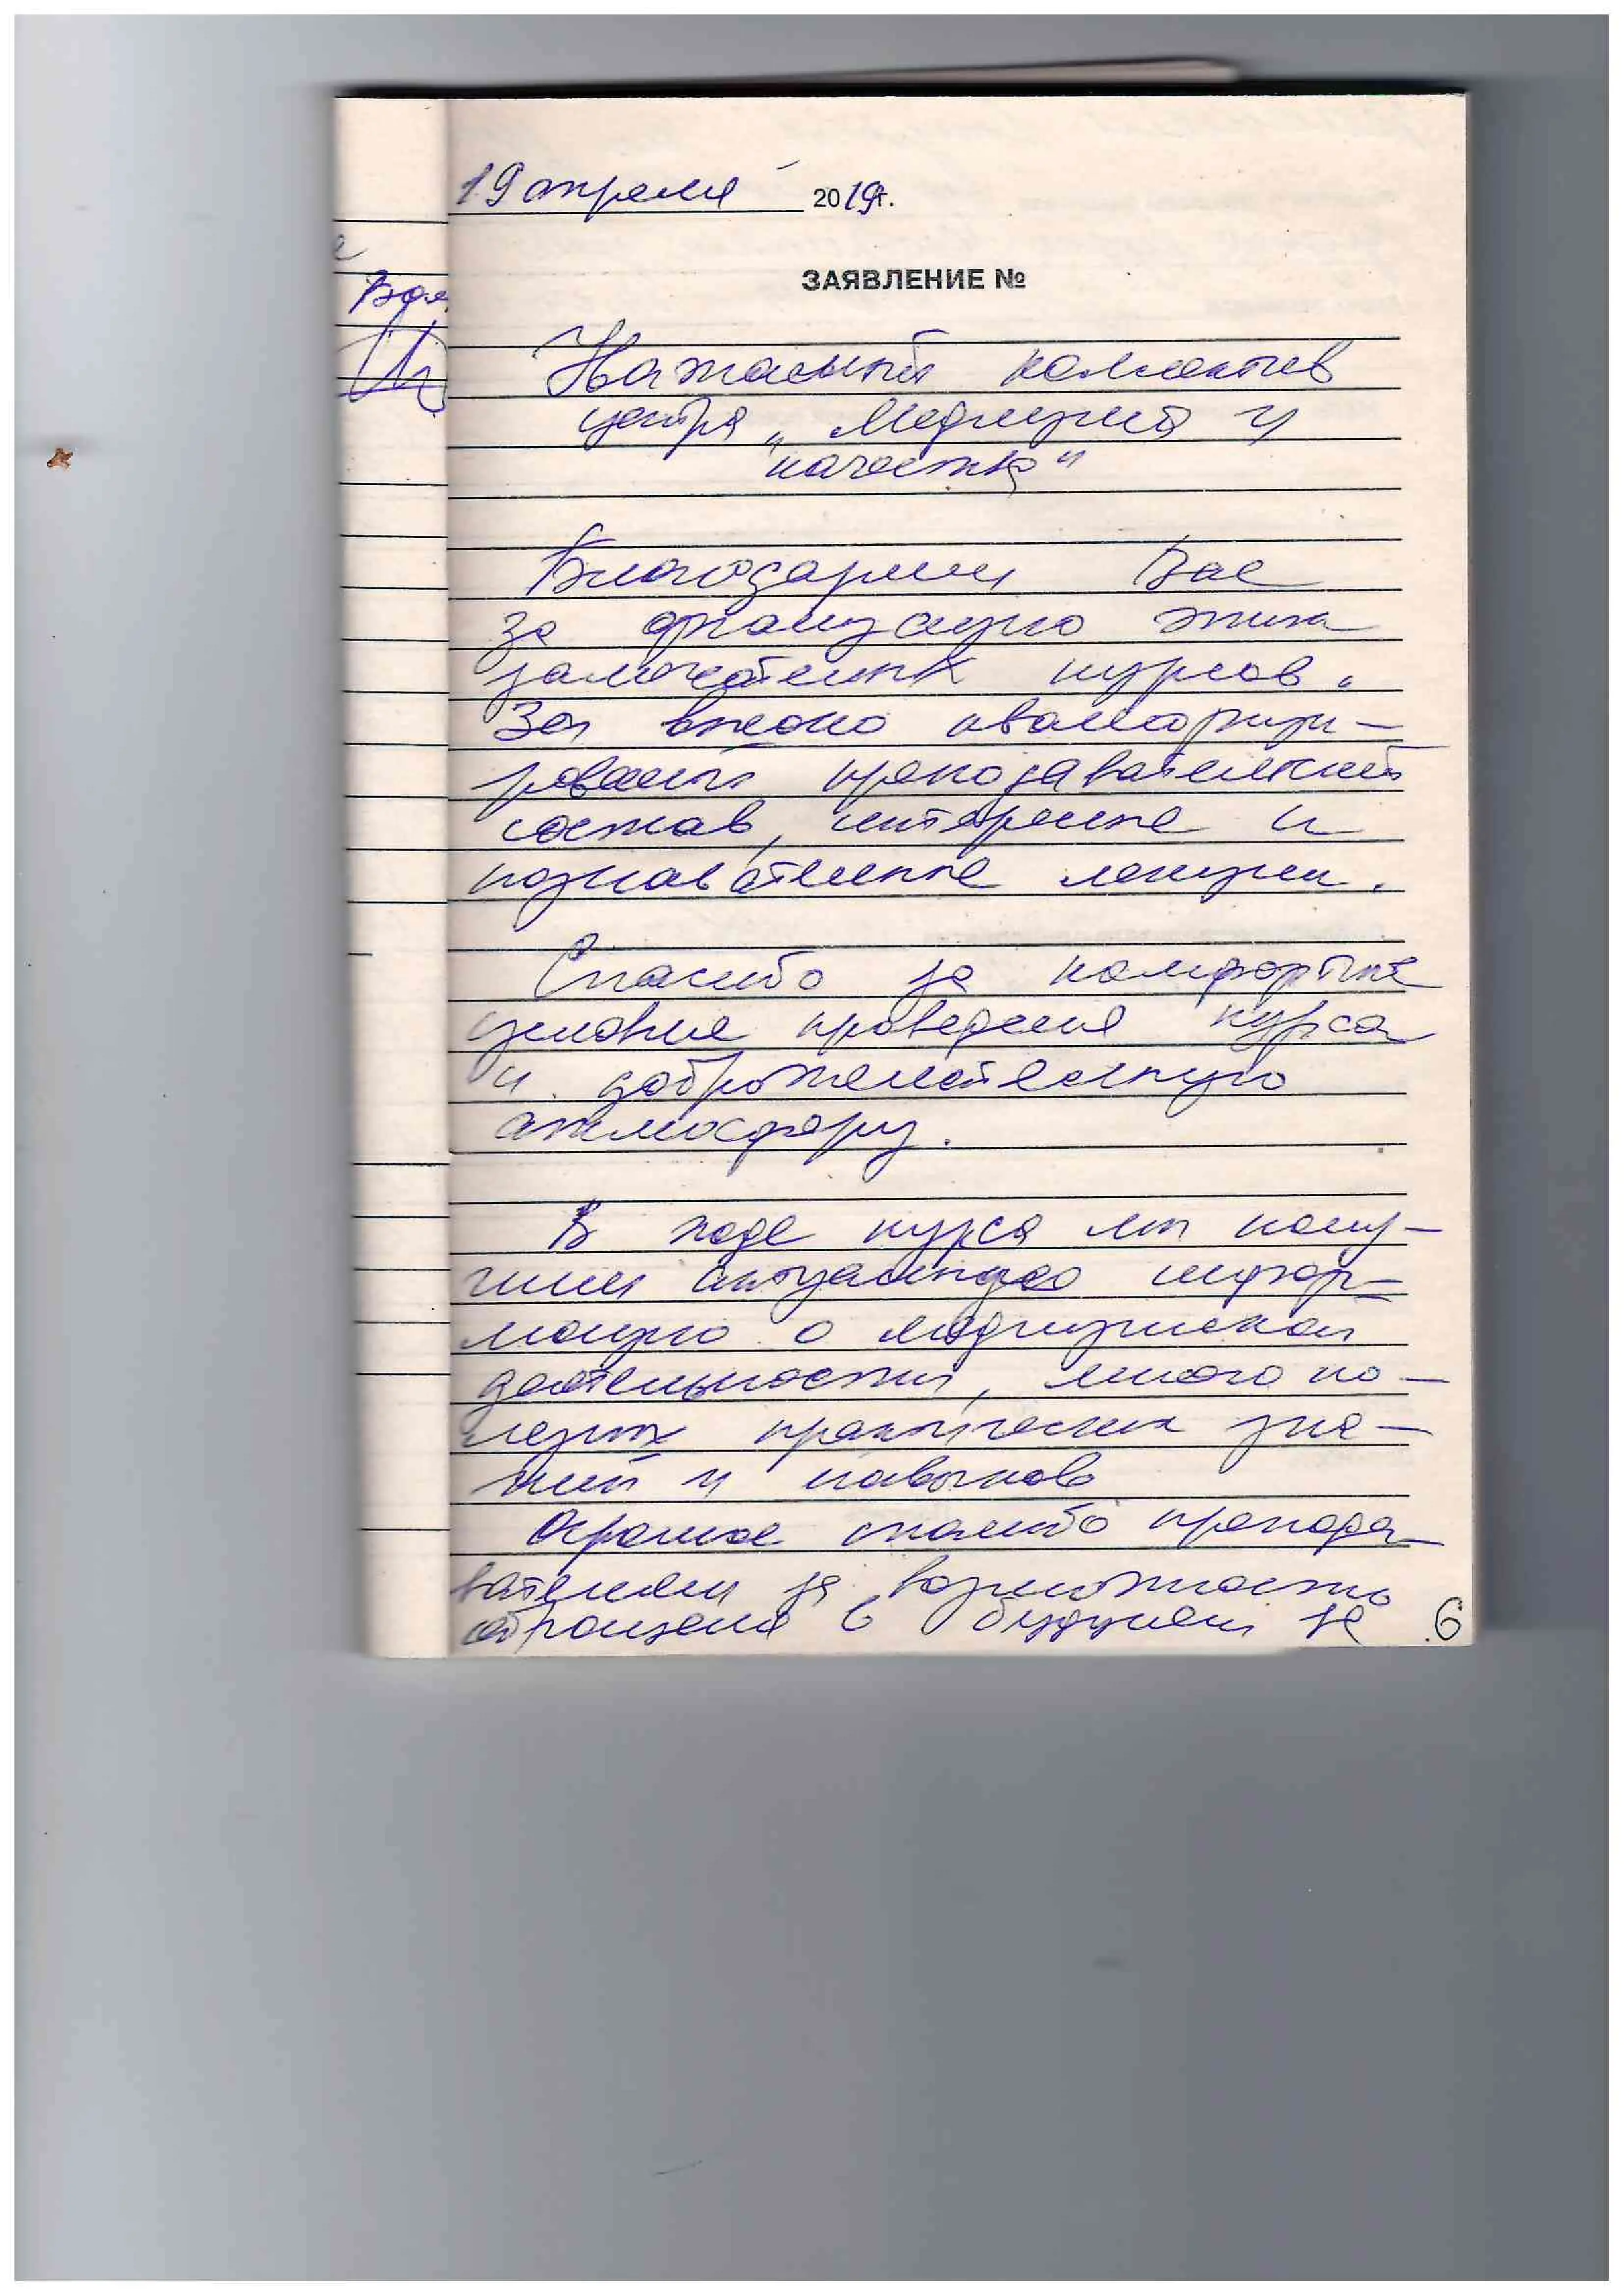 19 апреля 2019г.
ЗАЯВЛЕНИЕ №
Уважаемый коллектив
центра „Медицина и
качество"
Благодарим Вас
за организацию этих
замечательных курсов.
За высоко квалифици-
рованный преподавательский
состав, интересные и
познавательные лекции.
Спасибо за комфортные
условия проведения курса
и доброжелательную
атмосферу.
В ходе курса мы полу-
чили актуальную инфор-
мацию о медицинской
деятельности, много по-
лезных практических зна-
ний и навыков
Огромное спасибо препода-
вателям за возможность
обращения в будущем за
6